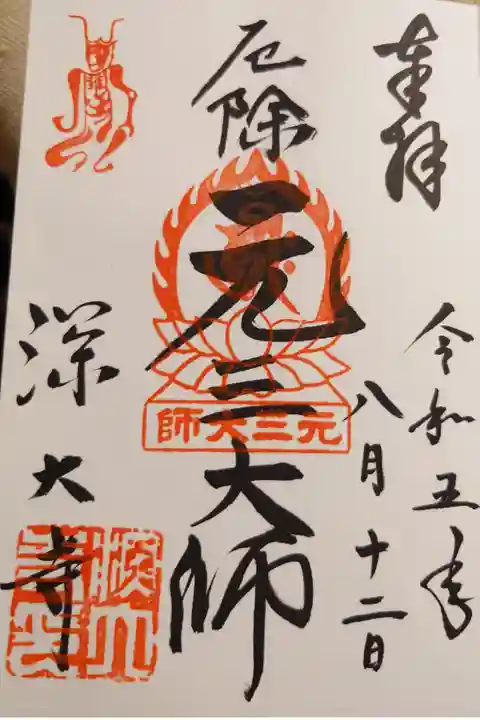 奉拝
令和五年
八月十二日
厄除
元三大師
師大三元
深大寺